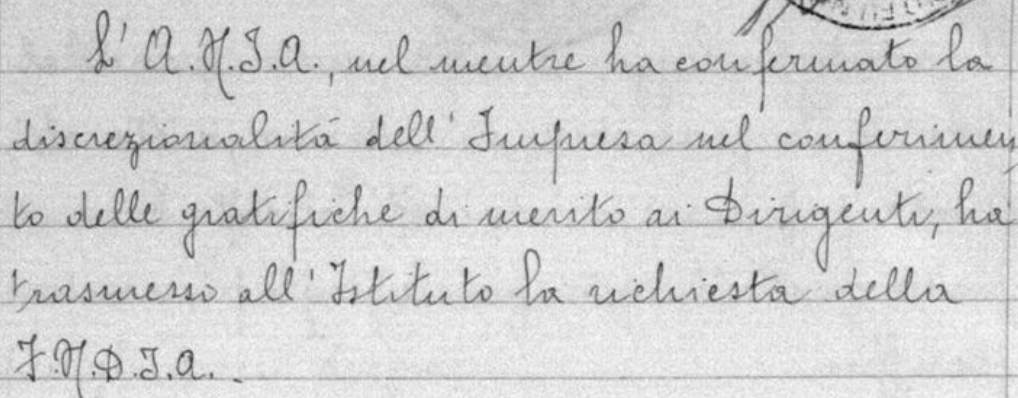 L' A.N.I.A., nel mentre ha confermato la
discrezionalità dell' Impresa nel conferimen
to delle gratifiche di merito ai Dirigenti, ha
trasmesso all' Istituto la richiesta della
F.N.D.I.A..